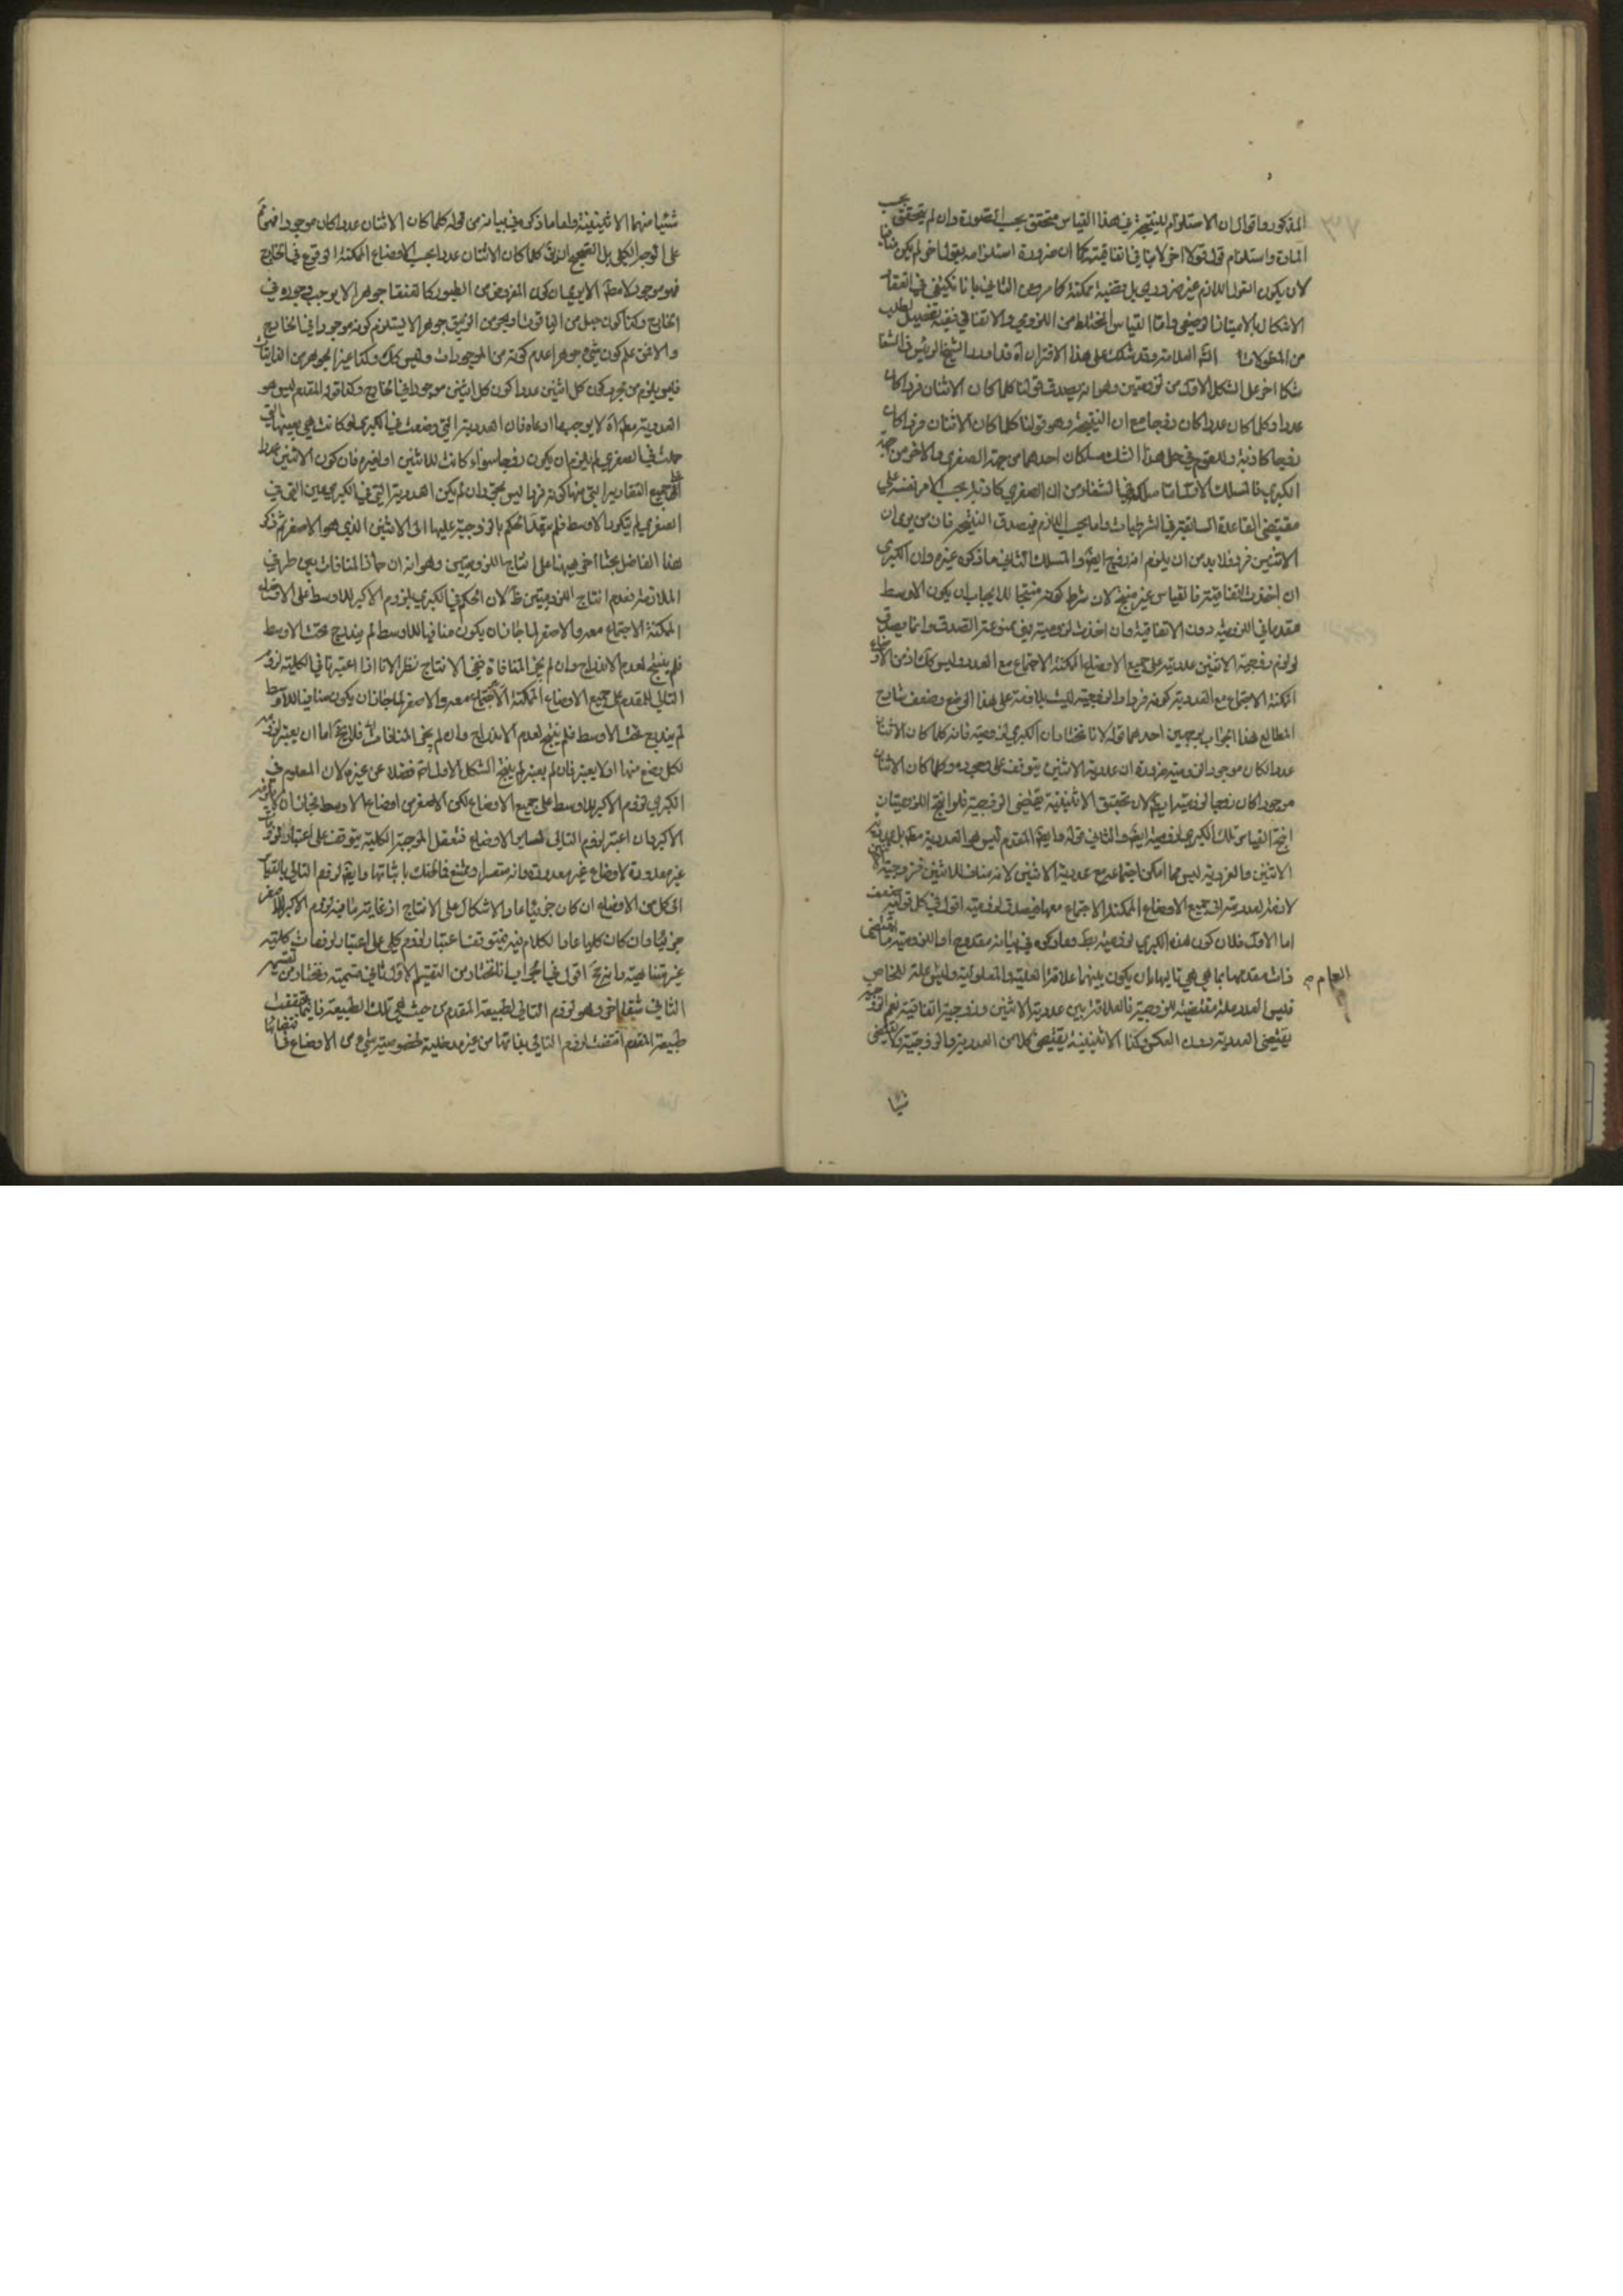 المذكور واقول ان الاستلزام للنتيجة في هذا القياس متحقق بحسب الصورة وان لم يتحقق بحسب
المادة واستلزام قول قولا اخر لا ينافي اتفاقيته كما ان ضرورة استلزامه لقول اخر لم يكن
لان يكون القول اللازم غير ضروري بل قضية ممكنة كما
الاشكال بالامتياز الوضعي واما القياس المختلط من اللزومي والاتفاقي ففيه تفصيل يطلب
من المطولات العلامة وقد شكك على هذا الاقتران قد اورد الشيخ الرئيس في الشفا
شكا اخر على الشكل الاول من لزوميتين وهو انه يصدق قولنا كلما كان الاثنان فردا كان
عددا وكلما كان عددا كان زوجا مع ان النتيجة وهو قولنا كلما كان الاثنان فردا كان
زوجا كاذبة وللقوم في حل هذا الشك مسلكان احدهما من جهة الصغرى والاخر من جهة
الكبرى فالمسلك الاول ما سلكه في الشفاء من ان الصغرى كاذبة بحسب الامر نفسه على
مقتضى القاعدة السابقة في الشرطيات واما بحسب الالزام فيصدق النتيجة فان من يرى ان
الاثنين فرد فلا بد من ان يلتزم انه زوج ايضا والمسلك الثاني ما ذكره غيره وان الكبرى
ان اخذت اتفاقية فالقياس غير منتج لان شرط كونه منتجا للايجاب ان يكون الاوسط
مقدما في اللزومية دون الاتفاقية وان اخذت لزومية فهي ممنوعة الصدق وانما يصدق
لو لزم زوجية الاثنين عدديته على جميع الاوضاع الممكنة الاجتماع مع العدد وليس كذلك اذ من الاوضاع
الممكنة الاجتماع مع العددية كونه فردا والزوجية ليست بلازمة على هذا الوضع وضعف شارح
المطالع هذا الجواب بوجهين احدهما قوله لانا نختار ان الكبرى لزومية فانه كلما كان الاثنان
عددا كان موجودا لزومية ضرورة ان عددية الاثنين يتوقف على وجوده وكلما كان الاثنان
موجودا كان زوجا لزومية ايضا لان تحقق الاثنينية يقتضي الزوجية فلو انتج اللزوميتان
انتج القياس تلك الكبرى لزومية ايضا والثاني قوله وايضا المقدم ليس هو العددية مطلقا بل عددية
الاثنين والفردية ليس مما امكن اجتماعه مع عددية الاثنين لانه مناف للاثنين فزوجية الاثنين
لازمة لعدديته على جميع الاوضاع الممكنة الاجتماع معها فيصدق لزومية اقول في كل قوليه ضعف
اما الاول فلان كون هذه الكبرى لزومية بط وما ذكره في بيانه مقدوح اما اللزومية ما يقتضى
ذات مقدمها بما هي هي تاليها بان يكون بينهما علاقة العلية والمعلولية وليس علة للخاص
العام
فليس العدد علة مقتضية للزوجية فالعلاقة بين عددية الاثنين وزوجيته اتفاقية نعم الزوجية
يقتضى العددية دون العكس وكذا الاثنينية يقتضى كلا من العددية والزوجية ولا يقتضى
شيئا
شيئا منهما الاثنينية واما ما ذكره في بيانه من قوله كلما كان الاثنان عددا كان موجودا فهو ثم
على الوجه الكلي بل الصحيح انه كلما كان الاثنان عددا بحسب الاوضاع الممكنة الوقوع في الخارج
فهو موجود لا مطلقا الا يرى ان كون المفروض من الطيور كالعنقا جوهرا لا يوجب وجوده في
الخارج وكذا كون جبل من الياقوت او بحر من الزيبق جوهرا لا يستلزم كونه موجودا في الخارج
والا فمن علم كون شيء جوهرا علم كونه من الموجودات وليس كذلك وكذا غير الجوهر من الذاتيات
فليس يلزم من مجرد كون كل اثنين عددا كون كل اثنين موجودا في الخارج وكذا قوله المقدم ليس هو
العددية مطلقا لا يوجب ما ادعاه فان العددية التي وضعت في الكبرى لو كانت هي بعينها التي
حملت في الصغرى لم يلزم ان يكون زوجا سواء كانت للاثنين او لغيره فان كون الاثنين عددا
على جميع التقادير التي منها كونه فردا ليس بحق وان لم يكن العددية التي في الكبرى عين التي في
الصغرى لم يتكرر الاوسط فلم يتعد الحكم بالزوجية عليها الى الاثنين الذي هو الاصغر ثم ذكر
هذا الفاضل بحثا اخر هيهنا على انتاج اللزوميتين وهو انه ان جاز المنافات بين طرفي
الملازمة فعدم انتاج اللزوميتين ظ لان الحكم في الكبرى بلزوم الاكبر للاوسط على الاوضاع
الممكنة الاجتماع معه والاصغر لما جاز ان يكون منافيا للاوسط لم يندرج تحت الاوسط
فلم ينتج لعدم الاندراج وان لم يجز المنافاة ففي الانتاج نظر لانا اذا اعتبرنا في الكلية لزوم
التالي للمقدم على جميع الاوضاع الممكنة الاجتماع معه والاصغر لما جاز ان يكون منافيا للاوسط
لم يندرج تحت الاوسط فلم ينتج لعدم الاندراج وان لم يجز المنافات فلا يخ اما ان يعتبر لزومه
لكل وضع منها اولا يعتبر فان لم يعتبر لم ينتج الشكل الاول فضلا عن غيره لان المعلوم في
الكبرى لزوم الاكبر للاوسط على جميع الاوضاع لكن الاصغر من اوضاع الاوسط فجاز ان لا يلزمه
الاكبر وان اعتبر لزوم التالي لساير الاوضاع فتعقل الموجبة الكلية يتوقف على اعتبار لزوميات
غير معدودة لاوضاع غير معدودة وانه متعسر او ممتنع
الى كل من الاوضاع ان كان جزئيا عاد الاشكال على الانتاج اذ غايته ما فيه لزوم الاكبر للاصغر
جزئيا وان كان كليا عاد الكلام فيه فيتوقف اعتبار لزوم كلي على اعتبار لزومات كلية
غير متناهية اقول في الجواب انا نختار من التقسيم الاول ثاني قسميه ونختار من تقسيمه
الثاني شقا اخر وهو لزوم التالي لطبيعة المقدم من حيث هي تلك الطبيعة فاينما تحققت
طبيعة المقدم اقتضت لزوم التالي بذاتها من غير مدخلية خصوصية شيء من الاوضاع